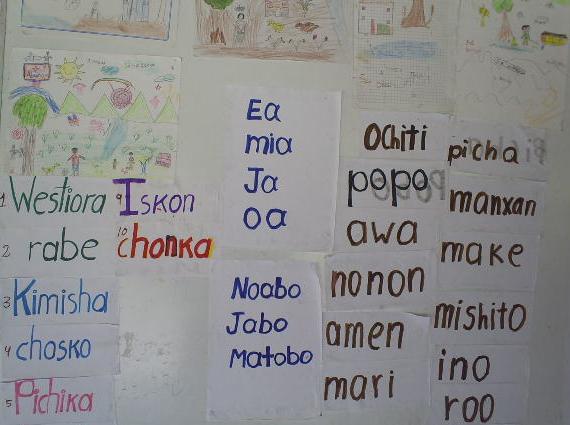 1 Westiora
2 rabe
3 Kimisha
4 chosko
5 Pichika
9 Iskon
10 chonka
Ea
mia
Ja
oa
Noabo
Jabo
Matobo
Ochiti
popo
awa
nonon
amen
mari
picha
manxan
make
mishito
ino
roo